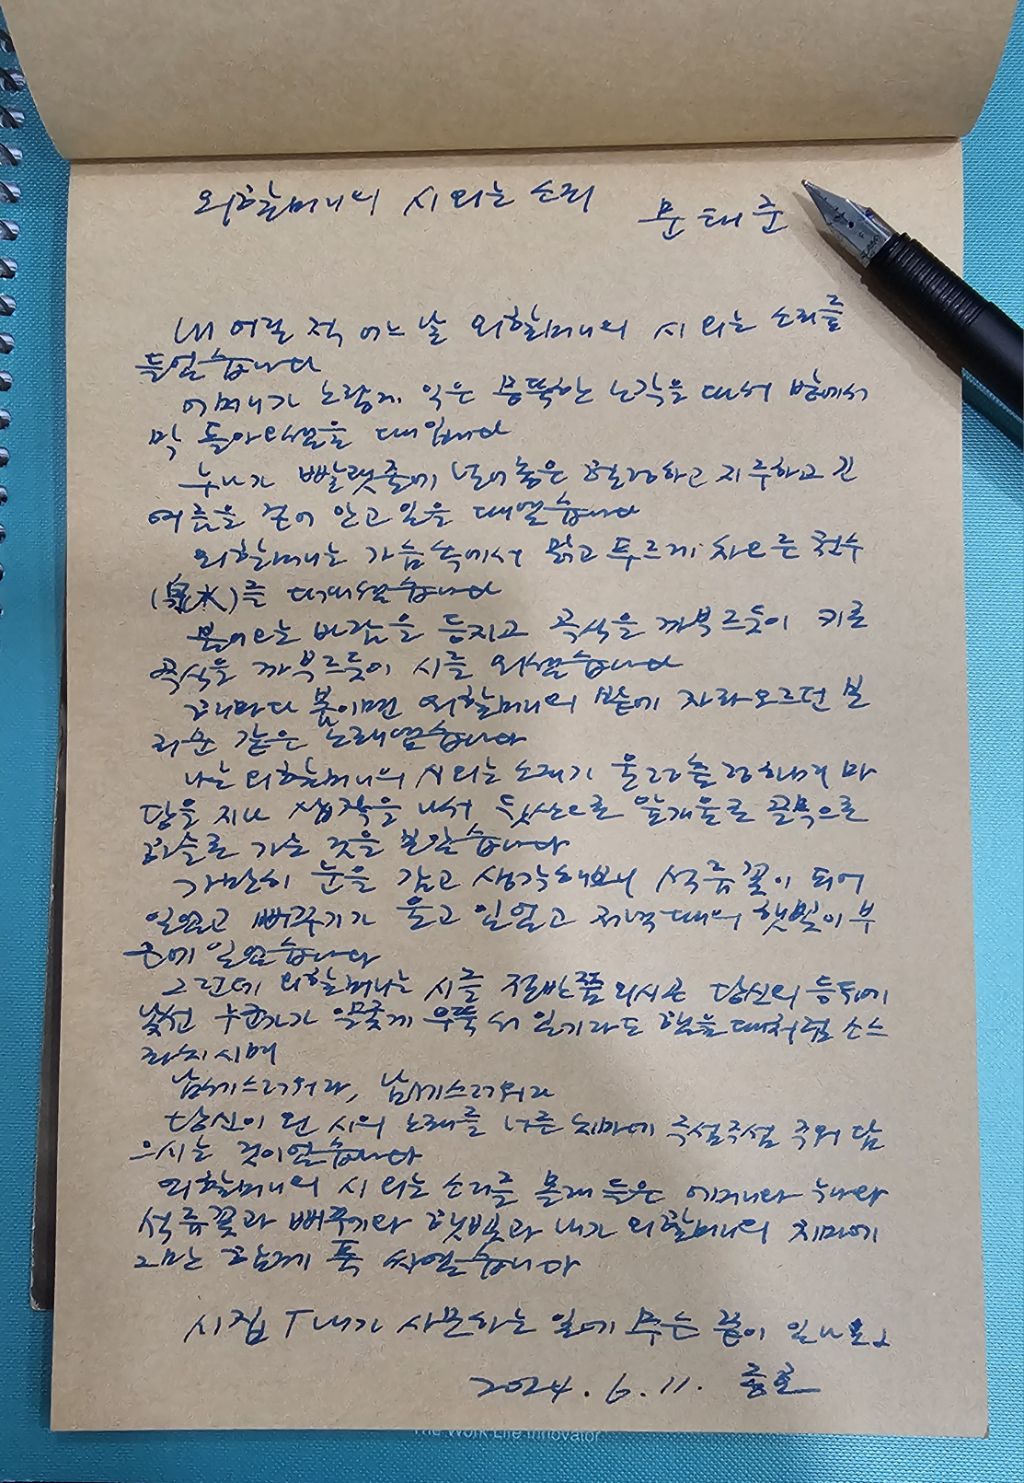 외할머니의 시 외는 소리
문태준
내 어릴 적 어느 날 외할머니의 시 외는 소리를
들었습니다
어머니가 노랗게 익은 뭉뚝한 노각을 따서 밭에서
막 돌아오셨을 때입니다
누나가 빨랫줄에 널어놓은 헐렁하고 지루하고 긴
여름을 걷어 안고 있을 때였습니다
외할머니는 가슴속에서 맑고 푸르게 차오른 천수
(泉水)를 떠내셨습니다
불어오는 바람을 등지고 곡식을 까부르듯이 키로
곡식을 까부르듯이 시를 외셨습니다
해마다 봄이면 외할머니의 밭에 자라오르던 보
리순 같은 노래였습니다
나는 외할머니의 시 외는 소리가 울렁출렁하며 마
당을 지나 샘가을 지나서 뒷산으로 앞개울로 골목으로
하늘로 가는 것을 보았습니다
가만히 눈을 감고 생각해보니 석류꽃이 피어
있었고 뻐꾸기가 울고 있었고 저녁때의 햇빛이 부
근에 있었습니다
그런데 외할머니는 시를 절반쯤 외시곤 당신의 등뒤에
낯선 누군가가 얄궂게 우뚝 서 있기라도 했을 때처럼 소스
라치시며
남세스러워라, 남세스러워라
당신이 왼 시의 노래를 너른 치마에 주섬주섬 주워 담
으시는 것이었습니다
외할머니의 시 외는 소리를 몰래 들은 어머니와 누나와
석류꽃과 뻐꾸기와 햇빛과 내가 외할머니의 치마에
그만 함께 폭 싸였습니다
시집 「내가 사모하는 일에 무슨 끝이 있나요」
2024. 6. 11.
The Work Life Innovator